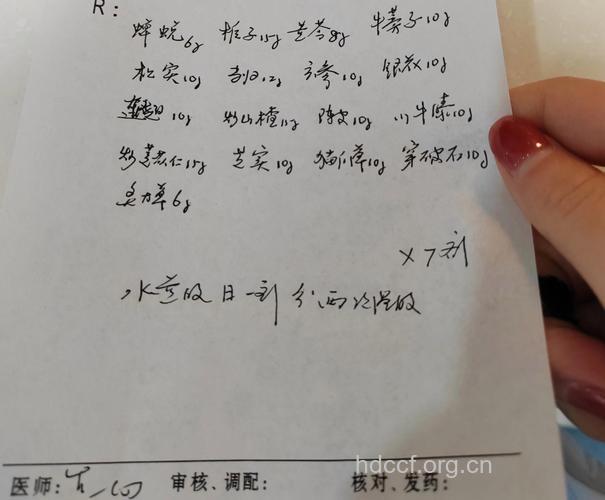 R:
蟑螂6g 栀子15g 黄芩8g 牛蒡子10g
枳实10g 当归12g 玄参10g 银花10g
连翘10g 炒山楂15g 陈皮10g 川牛膝10g
炒薏苡仁15g 芡实10g 猫爪草10g 穿破石10g
灵力草6g
×7剂
水煎服 日一剂 分两次温服
医师: 审核、调配: 核对、发药:
hdccf.org.cn